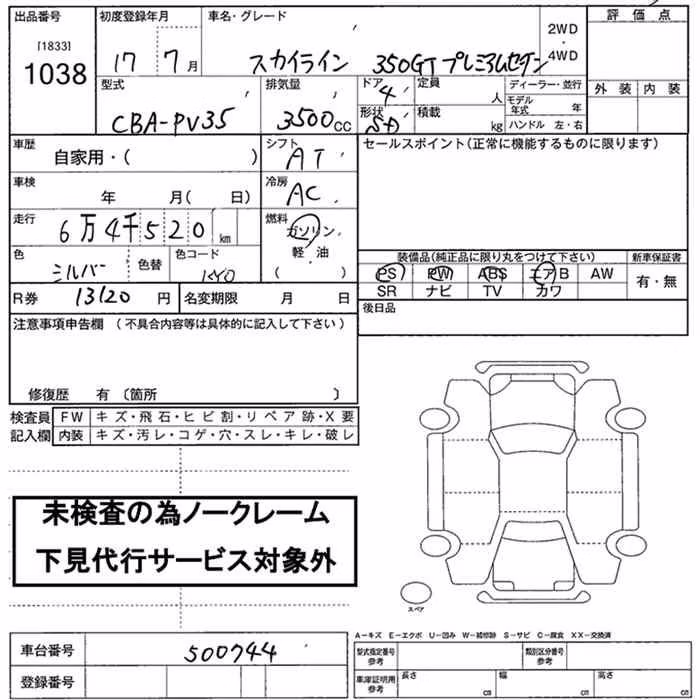 出品番号 初度登録年月 車名・グレード 2WD ・ 4WD 評価点
[1833]
1038 17 7月 スカイライン 350GT プレミアムセダン
型式 排気量 ドア 4 定員 人 ディーラー・並行 外装 内装
CBA-PV35 3500cc 形状 SD 積載 kg モデル年式 年
ハンドル 左・右
車歴 自家用・( ) シフト AT セールスポイント(正常に機能するものに限ります)
車検 年 月( 日) 冷房 AC
走行 6万4千520km 燃料 ガソリン 軽・油 ( )
色 シルバー 色替 色コード KY0
装備品(純正品に限り丸をつけて下さい) 新車保証書
PS PW ABS エアB AW 有・無
SR ナビ TV カワ
R券 13120円 名変期限 月 日 後日品
注意事項申告欄 (不具合内容等は具体的に記入して下さい)
修復歴 有〔箇所 〕
検査員記入欄 FW キズ・飛石・ヒビ割・リペア跡・X要
内装 キズ・汚レ・コゲ・穴・スレ・キレ・破レ
未検査の為ノークレーム
下見代行サービス対象外
スペア
A-キズ E-エクボ U-凹み W-補修跡 S-サビ C-腐食 XX-交換済
車台番号 500744 型式指定番号 参考 類別区分番号 参考
登録番号 車庫証明用 参考 長さ cm 幅 cm 高さ cm